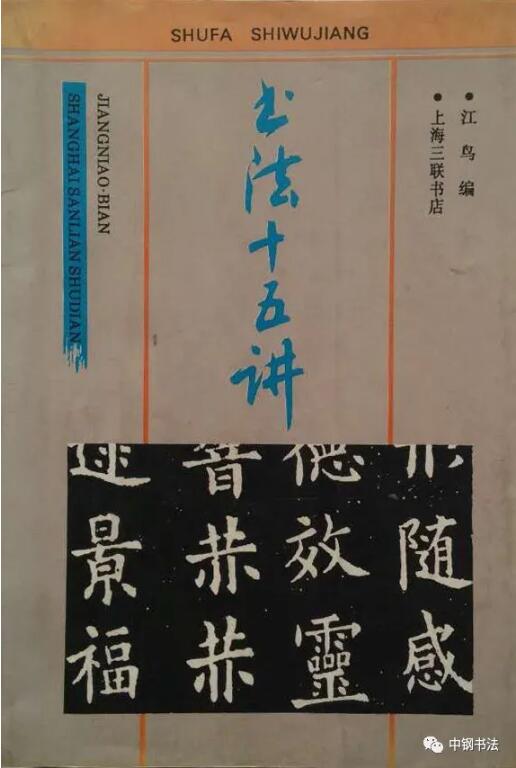 SHUFA SHIWUJIANG
书法十五讲
● 江鸟编
● 上海三联书店
JIANGNIAO·BIAN
SHANGHAI SANLIAN SHUDIAN
随感
德效靈
景福
中钢书法